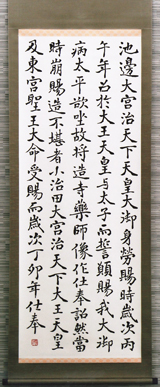 池邊大宮治天下天皇大御身勞賜時歳次丙
午年召於大王天皇與太子而誓願賜我大御
病太平欲坐故将造寺藥師像作仕奉詔然當
時崩賜造不堪者小治田大宮治天下大王天皇
及東宮聖王大命受賜而歳次丁卯年仕奉